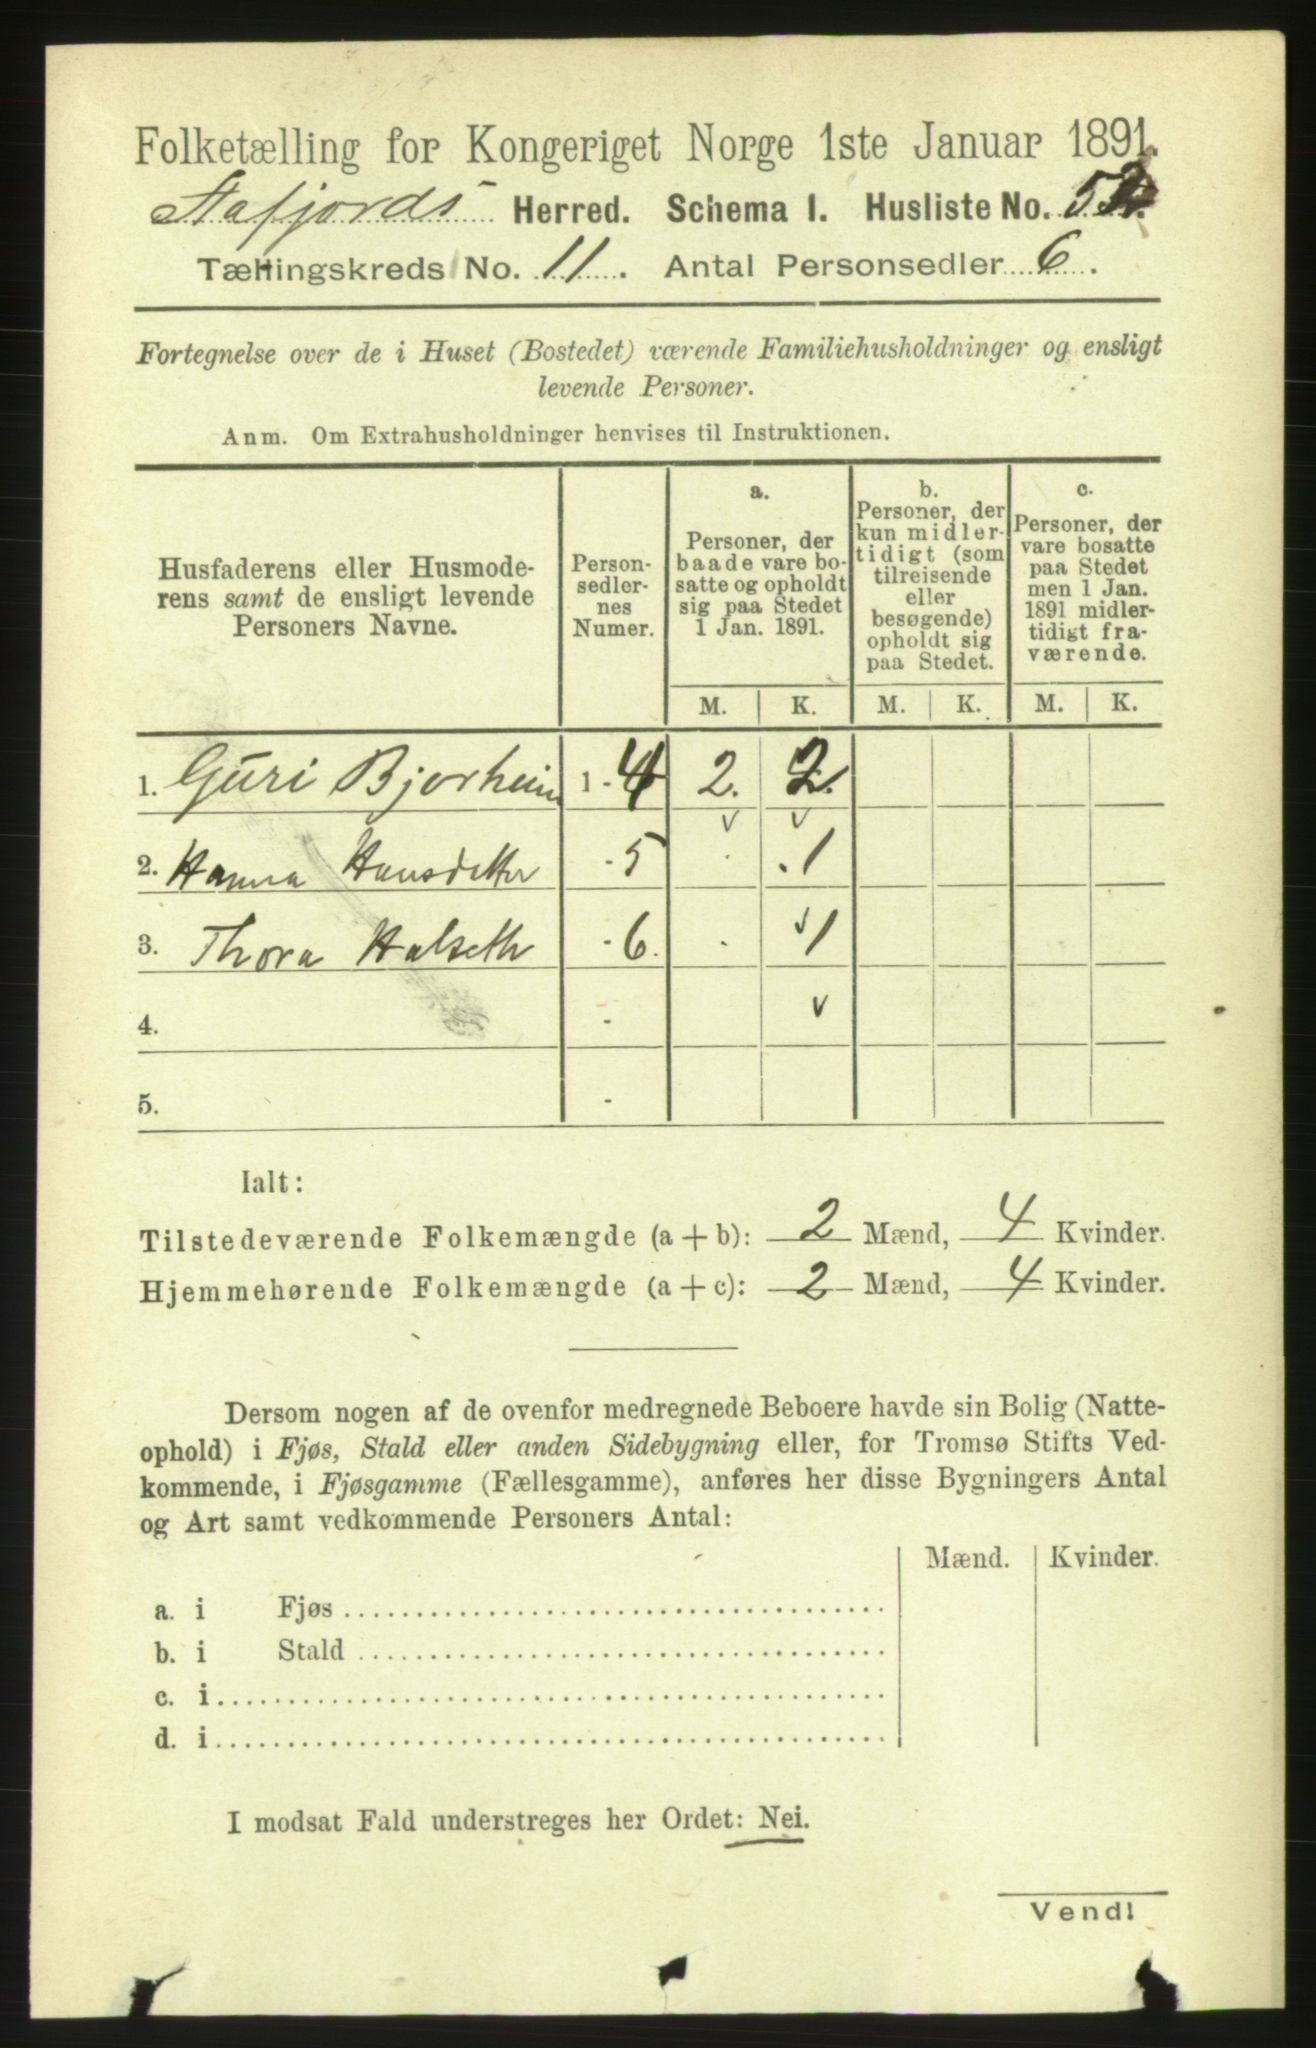 Folketælling for Kongeriget Norge 1ste Januar 1891.
Aafjords Herred. Schema I. Husliste No. 52.
Tællingskreds No. 11. Antal Personsedler 6.
Fortegnelse over de i Huset (Bostedet) værende Familiehusholdninger og ensligt
levende Personer.
Anm. Om Extrahusholdninger henvises til Instruktionen.
Husfaderens eller Husmode-
rens samt de ensligt levende
Personers Navne.
Person-
sedler-
nes
Numer.
a.
Personer, der
baade vare bo-
satte og opholdt
sig paa Stedet
1 Jan. 1891.
b.
Personer, der
kun midler-
tidigt (som
tilreisende
eller
besøgende)
opholdt sig
paa Stedet.
c.
Personer, der
vare bosatte
paa Stedet
men 1 Jan.
1891 midler-
tidigt fra-
værende.
M. K. M. K. M. K.
1. Guri Bjorheim 1 - 4 2. 2.
2. Hanna Hansdatter - 5 . . 1
3. Thora Halseth - 6. . 1
4. -
5. -
Ialt:
Tilstedeværende Folkemængde (a + b): 2 Mænd, 4 Kvinder.
Hjemmehørende Folkemængde (a + c): 2 Mænd, 4 Kvinder.
Dersom nogen af de ovenfor medregnede Beboere havde sin Bolig (Natte-
ophold) i Fjøs, Stald eller anden Sidebygning eller, for Tromsø Stifts Ved-
kommende, i Fjøsgamme (Fællesgamme), anføres her disse Bygningers Antal
og Art samt vedkommende Personers Antal:
Mænd. Kvinder.
a. i Fjøs
b. i Stald
c. i
d. i
I modsat Fald understreges her Ordet: Nei.
Vend!